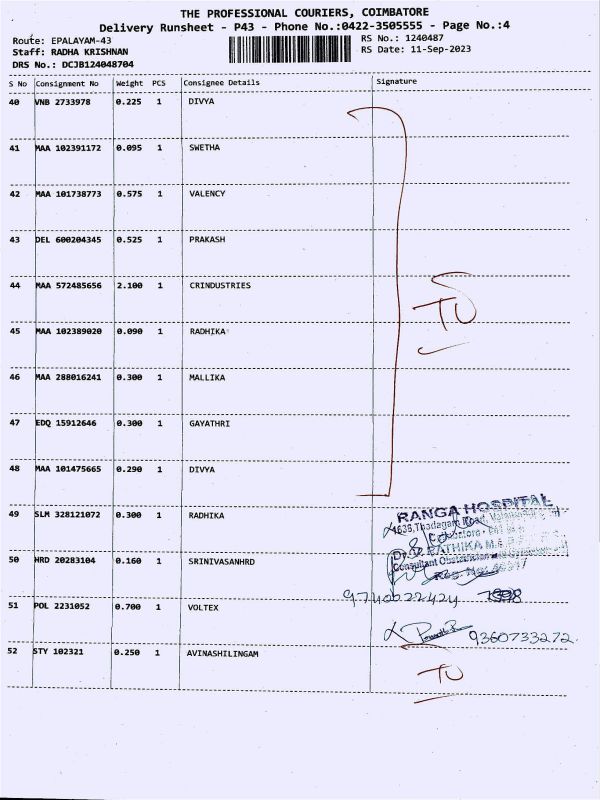 THE PROFESSIONAL COURIERS, COIMBATORE
Delivery Runsheet - P43 - Phone No.:0422-3505555 - Page No.:4
Route: EPALAYAM-43 RS No.: 1240487
Staff: RADHA KRISHNAN RS Date: 11-Sep-2023
DRS No.: DCJB124048704
S No Consignment No Weight PCS Consignee Details Signature
40 VNB 2733978 0.225 1 DIVYA
41 MAA 102391172 0.095 1 SWETHA
42 MAA 101738773 0.575 1 VALENCY
43 DEL 600204345 0.525 1 PRAKASH
44 MAA 572485656 2.100 1 CRINDUSTRIES
TU
45 MAA 102389020 0.090 1 RADHIKA
46 MAA 288016241 0.300 1 MALLIKA
47 EDQ 15912646 0.300 1 GAYATHRI
48 MAA 101475665 0.290 1 DIVYA
RANGA HOSPITAL
49 SLM 328121072 0.300 1 RADHIKA
Thadagam Road,
Coimbatore
50 HRD 20283104 0.160 1 SRINIVASANHRD
Consultant
Reg. No:
51 POL 2231052 0.700 1 VOLTEX
9360733272
52 STY 102321 0.250 1 AVINASHILINGAM
TU